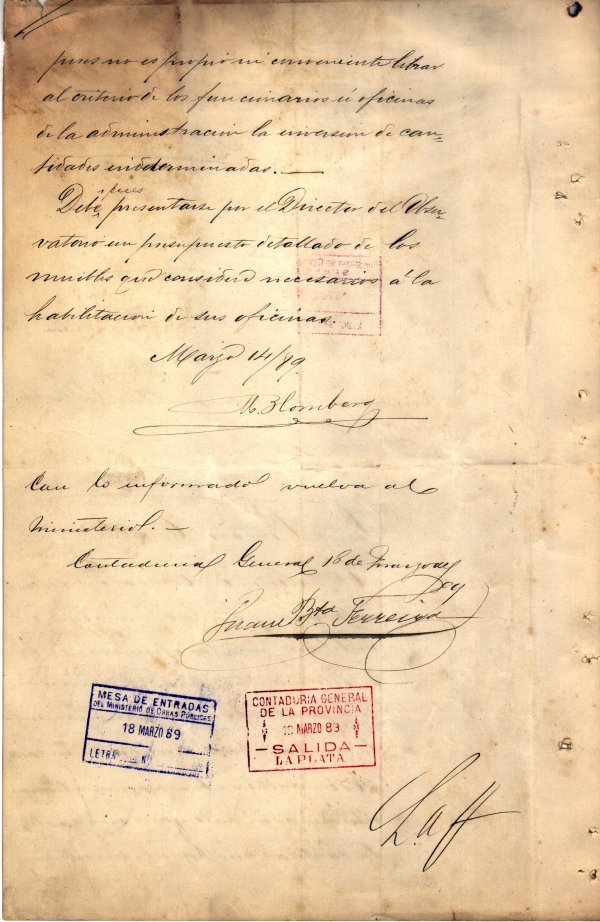 pues no es propio ni conveniente librar
al criterio de los funcionarios ú oficinas
de la administracion la inversion de can-
tidades indeterminadas. —
pues
Debe, presentarse por el Director del Obser-
vatorio un presupuesto detallado de los
muebles que considere necesarios á la
habilitacion de sus oficinas.
Marzo 14/89.
M. Blomberg
Con lo informado vuelva al
Ministerio. —
Contaduria General 18 de Marzo de
89
Juan Bta Ferreira
MESA DE ENTRADAS
DEL MINISTERIO DE OBRAS PUBLICAS
18 MARZO 89
LETRA Nº
CONTADURIA GENERAL
DE LA PROVINCIA
MARZO 89
— SALIDA —
LA PLATA